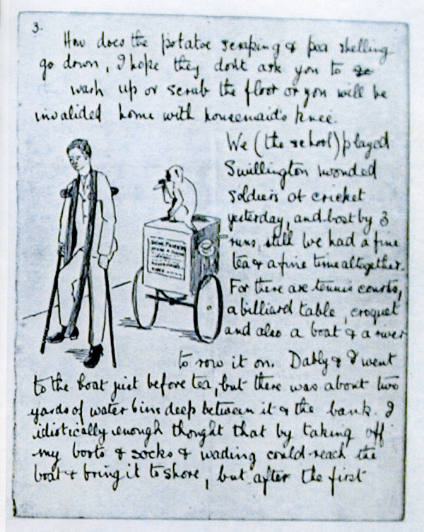 3.
How does the potatoe scraping & pea shelling
go down, I hope they dont ask you to
wash up or scrub the floor or you will be
invalided home with housemaid's knee.
We (the school) played
Swillington wounded
soldiers at cricket
yesterday, and beat by 3
runs, still we had a fine
tea & a fine time altogether.
For there are tennis courts,
a billiard table, croquet
and also a boat & a river
to row it on. Dably & I went
to the boat just before tea, but there was about two
yards of water 6 ins deep between it & the bank. I
idiotically enough thought that by taking off
my boots & socks & wading could reach the
boat & bring it to shore, but after the first